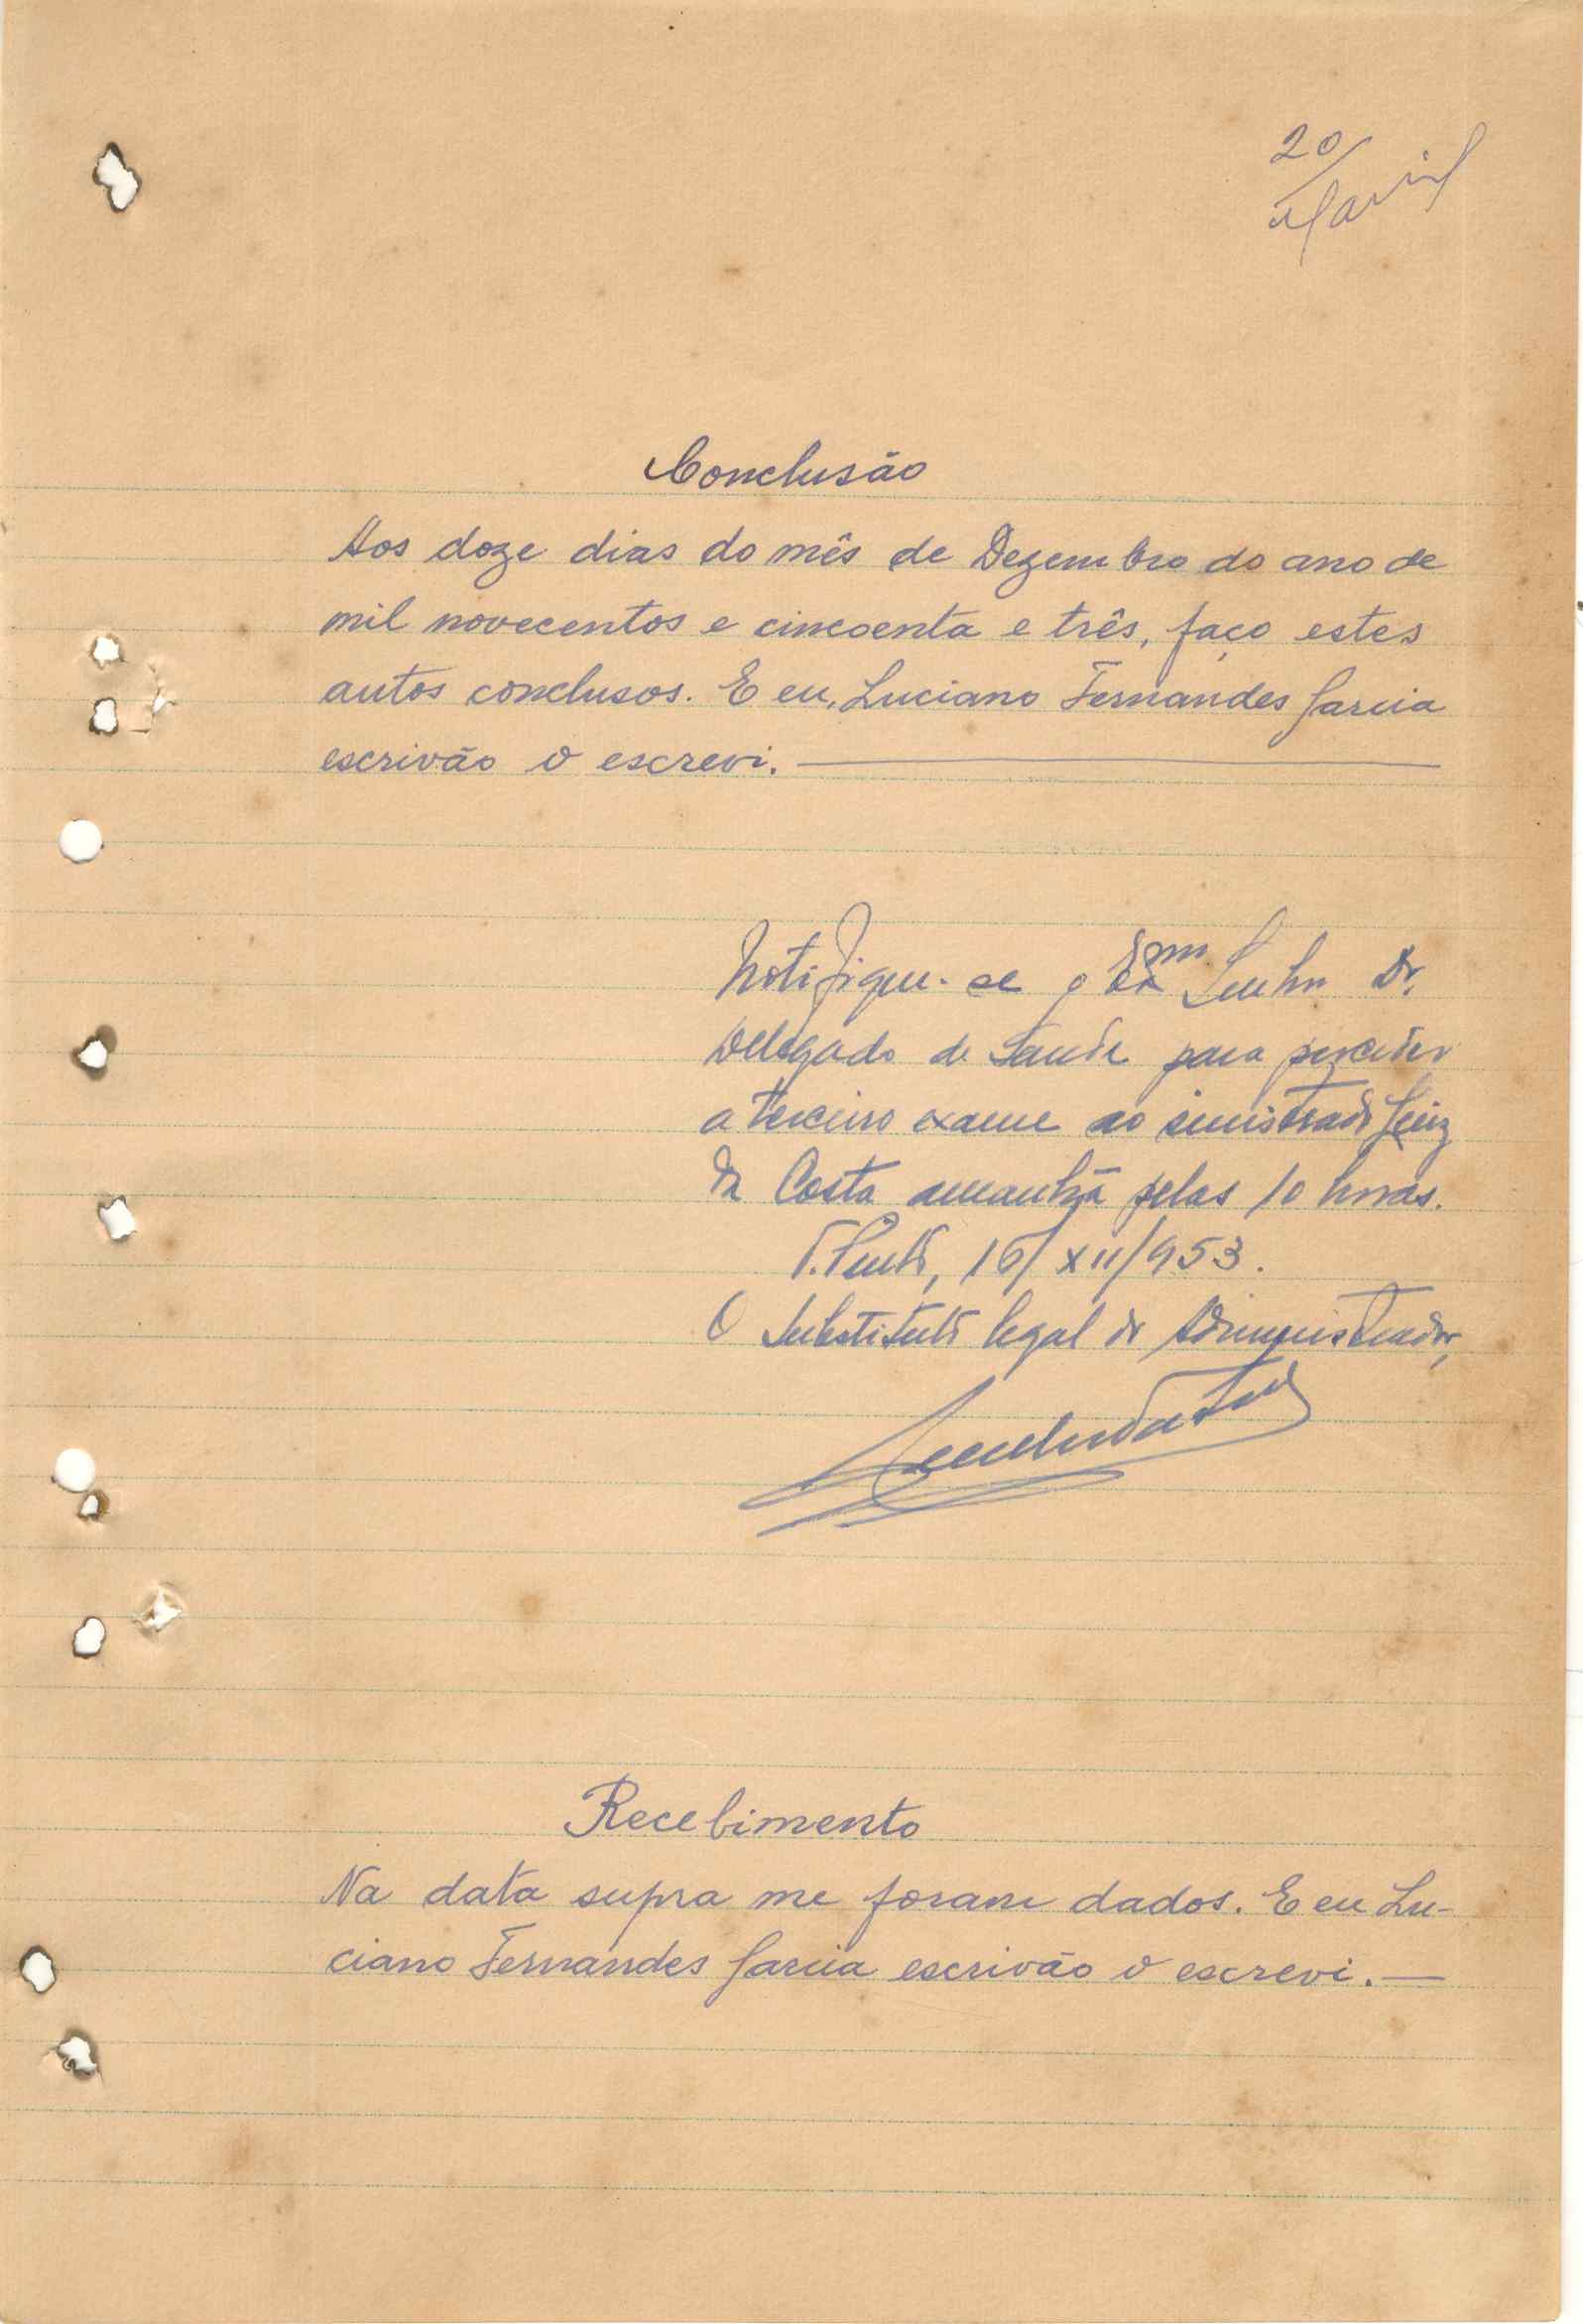 20
Conclusão
Aos doze dias do mês de Dezembro do ano de
mil novecentos e cincoenta e três, faço estes
autos conclusos. E eu, Luciano Fernandes Garcia
escrivão o escrevi.
Notifique-se o Exmº Senhor Dr.
Delegado de Saude para proceder
a terceiro exame ao sinistrado Luiz
da Costa amanhã pelas 10 horas.
16/XII/953.
O Substituto legal do Administrador,
Recebimento
Na data supra me foram dados. E eu Lu-
ciano Fernandes Garcia escrivão o escrevi.